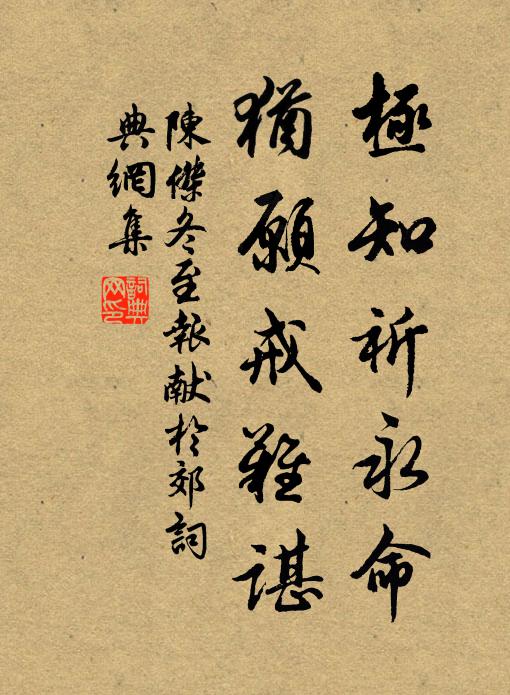 極知祈永命
猶願戒難諶
陳傑冬至報献於郊詞
典網集
詞典網印